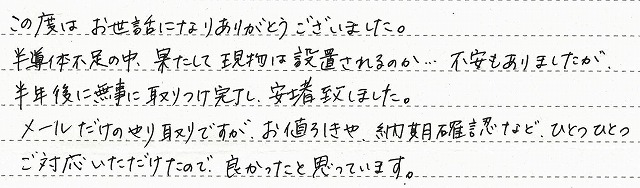 この度は お世話になりありがとうございました。
半導体不足の中、果たして現物は設置されるのか… 不安もありましたが、
半年後に無事に取りつけ完了し、安堵致しました。
メールだけのやり取りですが、お値引きや、納期確認など、ひとつひとつ
ご対応いただけたので、良かったと思っています。